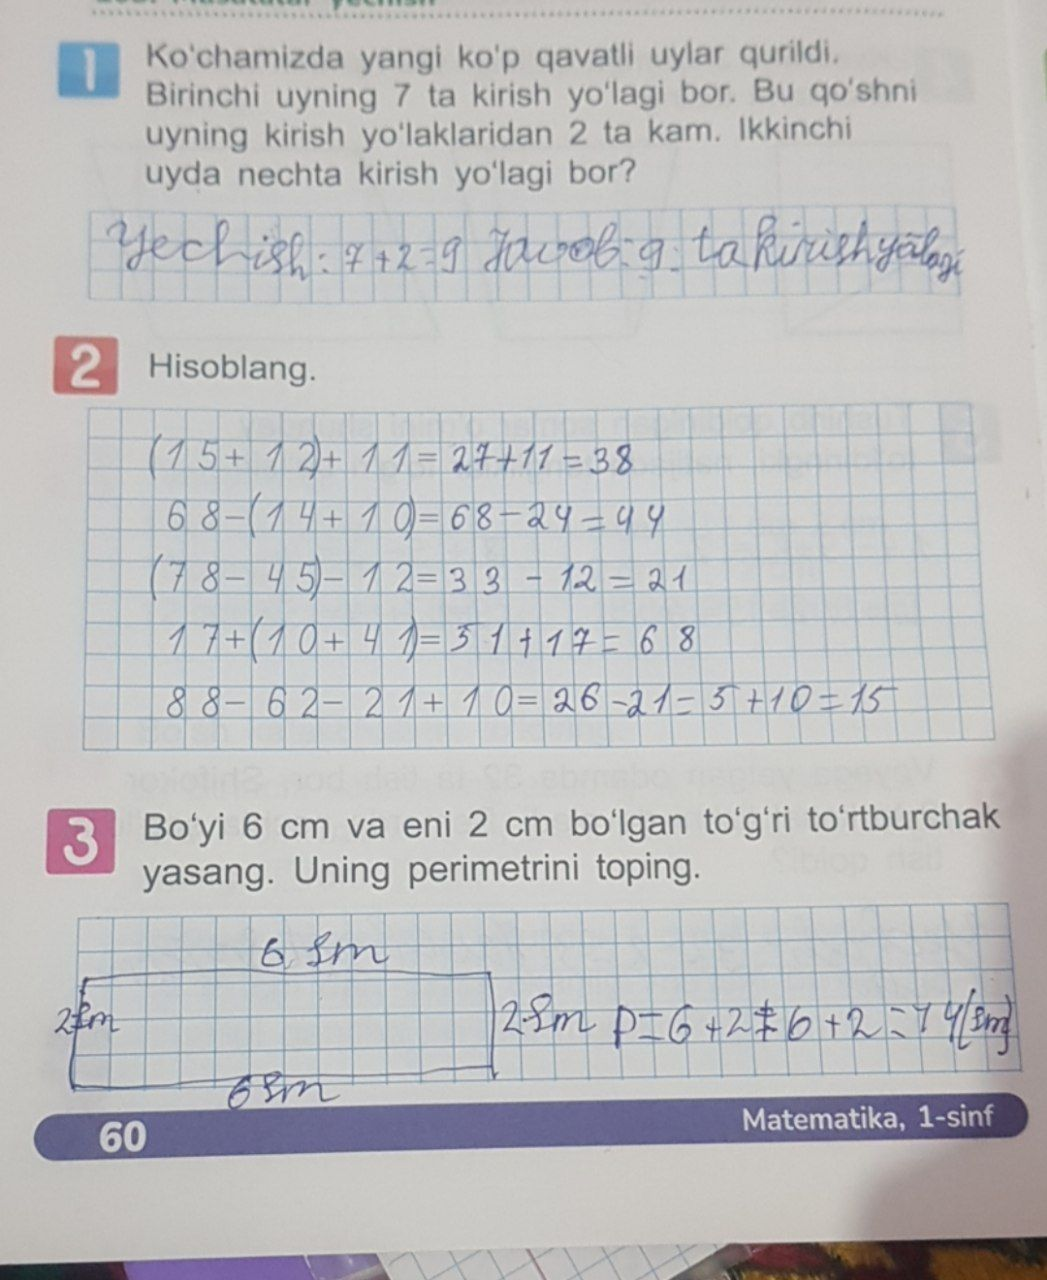 1 Ko'chamizda yangi ko'p qavatli uylar qurildi.
Birinchi uyning 7 ta kirish yo'lagi bor. Bu qo'shni
uyning kirish yo'laklaridan 2 ta kam. Ikkinchi
uyda nechta kirish yo'lagi bor?
Yechish: 7+2=9 Javob: 9. ta kirish yālagi
2 Hisoblang.
(15+12)+11=27+11=38
68-(14+10)=68-24=44
(78-45)-12=33-12=21
17+(10+41)=51+17=68
88-62-21+10=26-21=5+10=15
3 Bo'yi 6 cm va eni 2 cm bo'lgan to'g'ri to'rtburchak
yasang. Uning perimetrini toping.
6 sm
2sm
2sm P=6+2+6+2=14(sm)
6sm
60
Matematika, 1-sinf